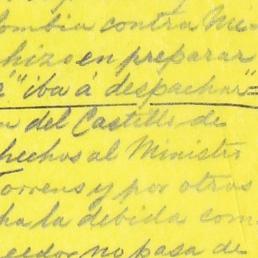 lombia contra Mé
hizo en preparar
" iba á despachar"
n del Castillo de
hechos al Ministro
Torrens y por otros
ha la debida com
no pasa de